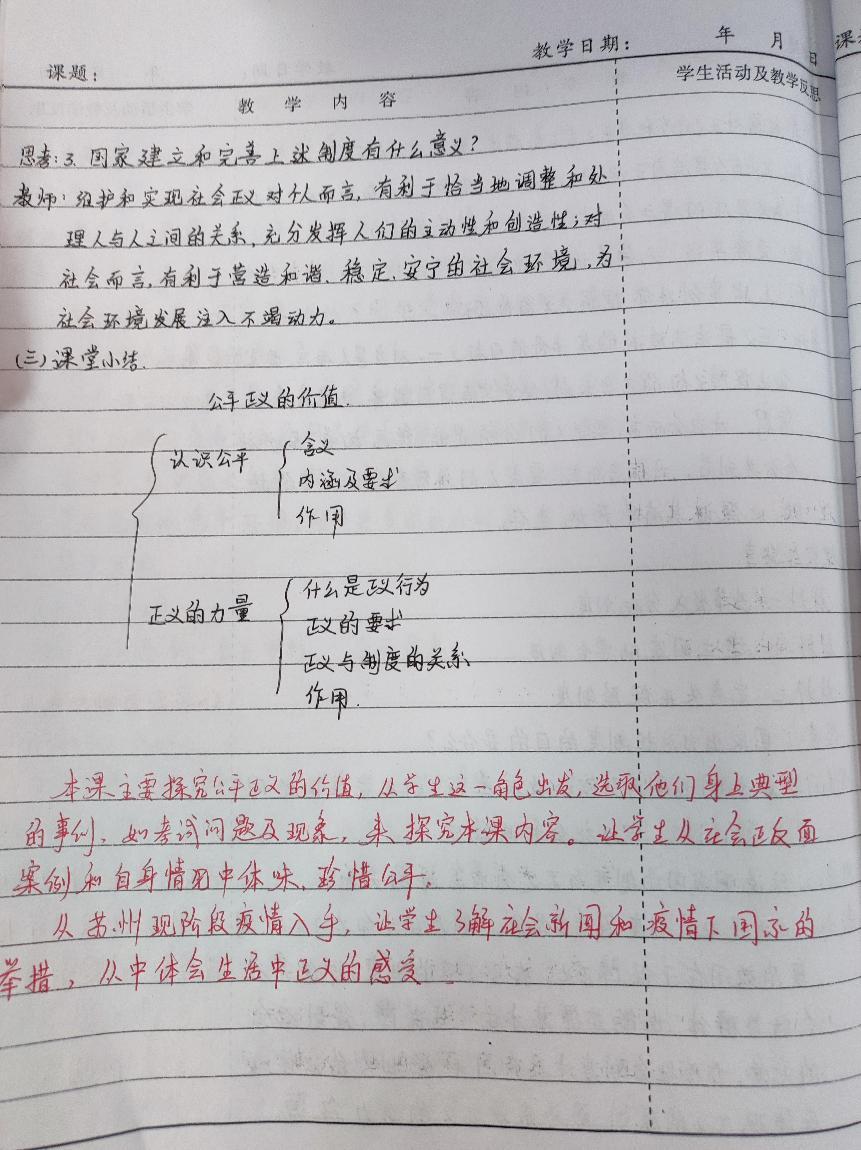 教学日期： 年 月 日
课题：
教 学 内 容
学生活动及教学反思
思考:3. 国家建立和完善上述制度有什么意义?
教师: 维护和实现社会正义对个人而言, 有利于恰当地调整和处
理人与人之间的关系, 充分发挥人们的主动性和创造性;对
社会而言,有利于营造和谐、稳定、安宁的社会环境,为
社会环境发展注入不竭动力。
(三)课堂小结.
公平正义的价值.
认识公平
含义
内涵及要求
作用
正义的力量
什么是正义行为
正义的要求
正义与制度的关系
作用.
本课主要探究公平正义的价值, 从学生这一角色出发, 选取他们身上典型
的事例、如考试问题及现象, 来探究本课内容。让学生从社会正反面
案例和自身情况中体味、珍惜公平.
从苏州现阶段疫情入手, 让学生了解社会新闻和疫情下国家的
举措, 从中体会生活中正义的感受.
课